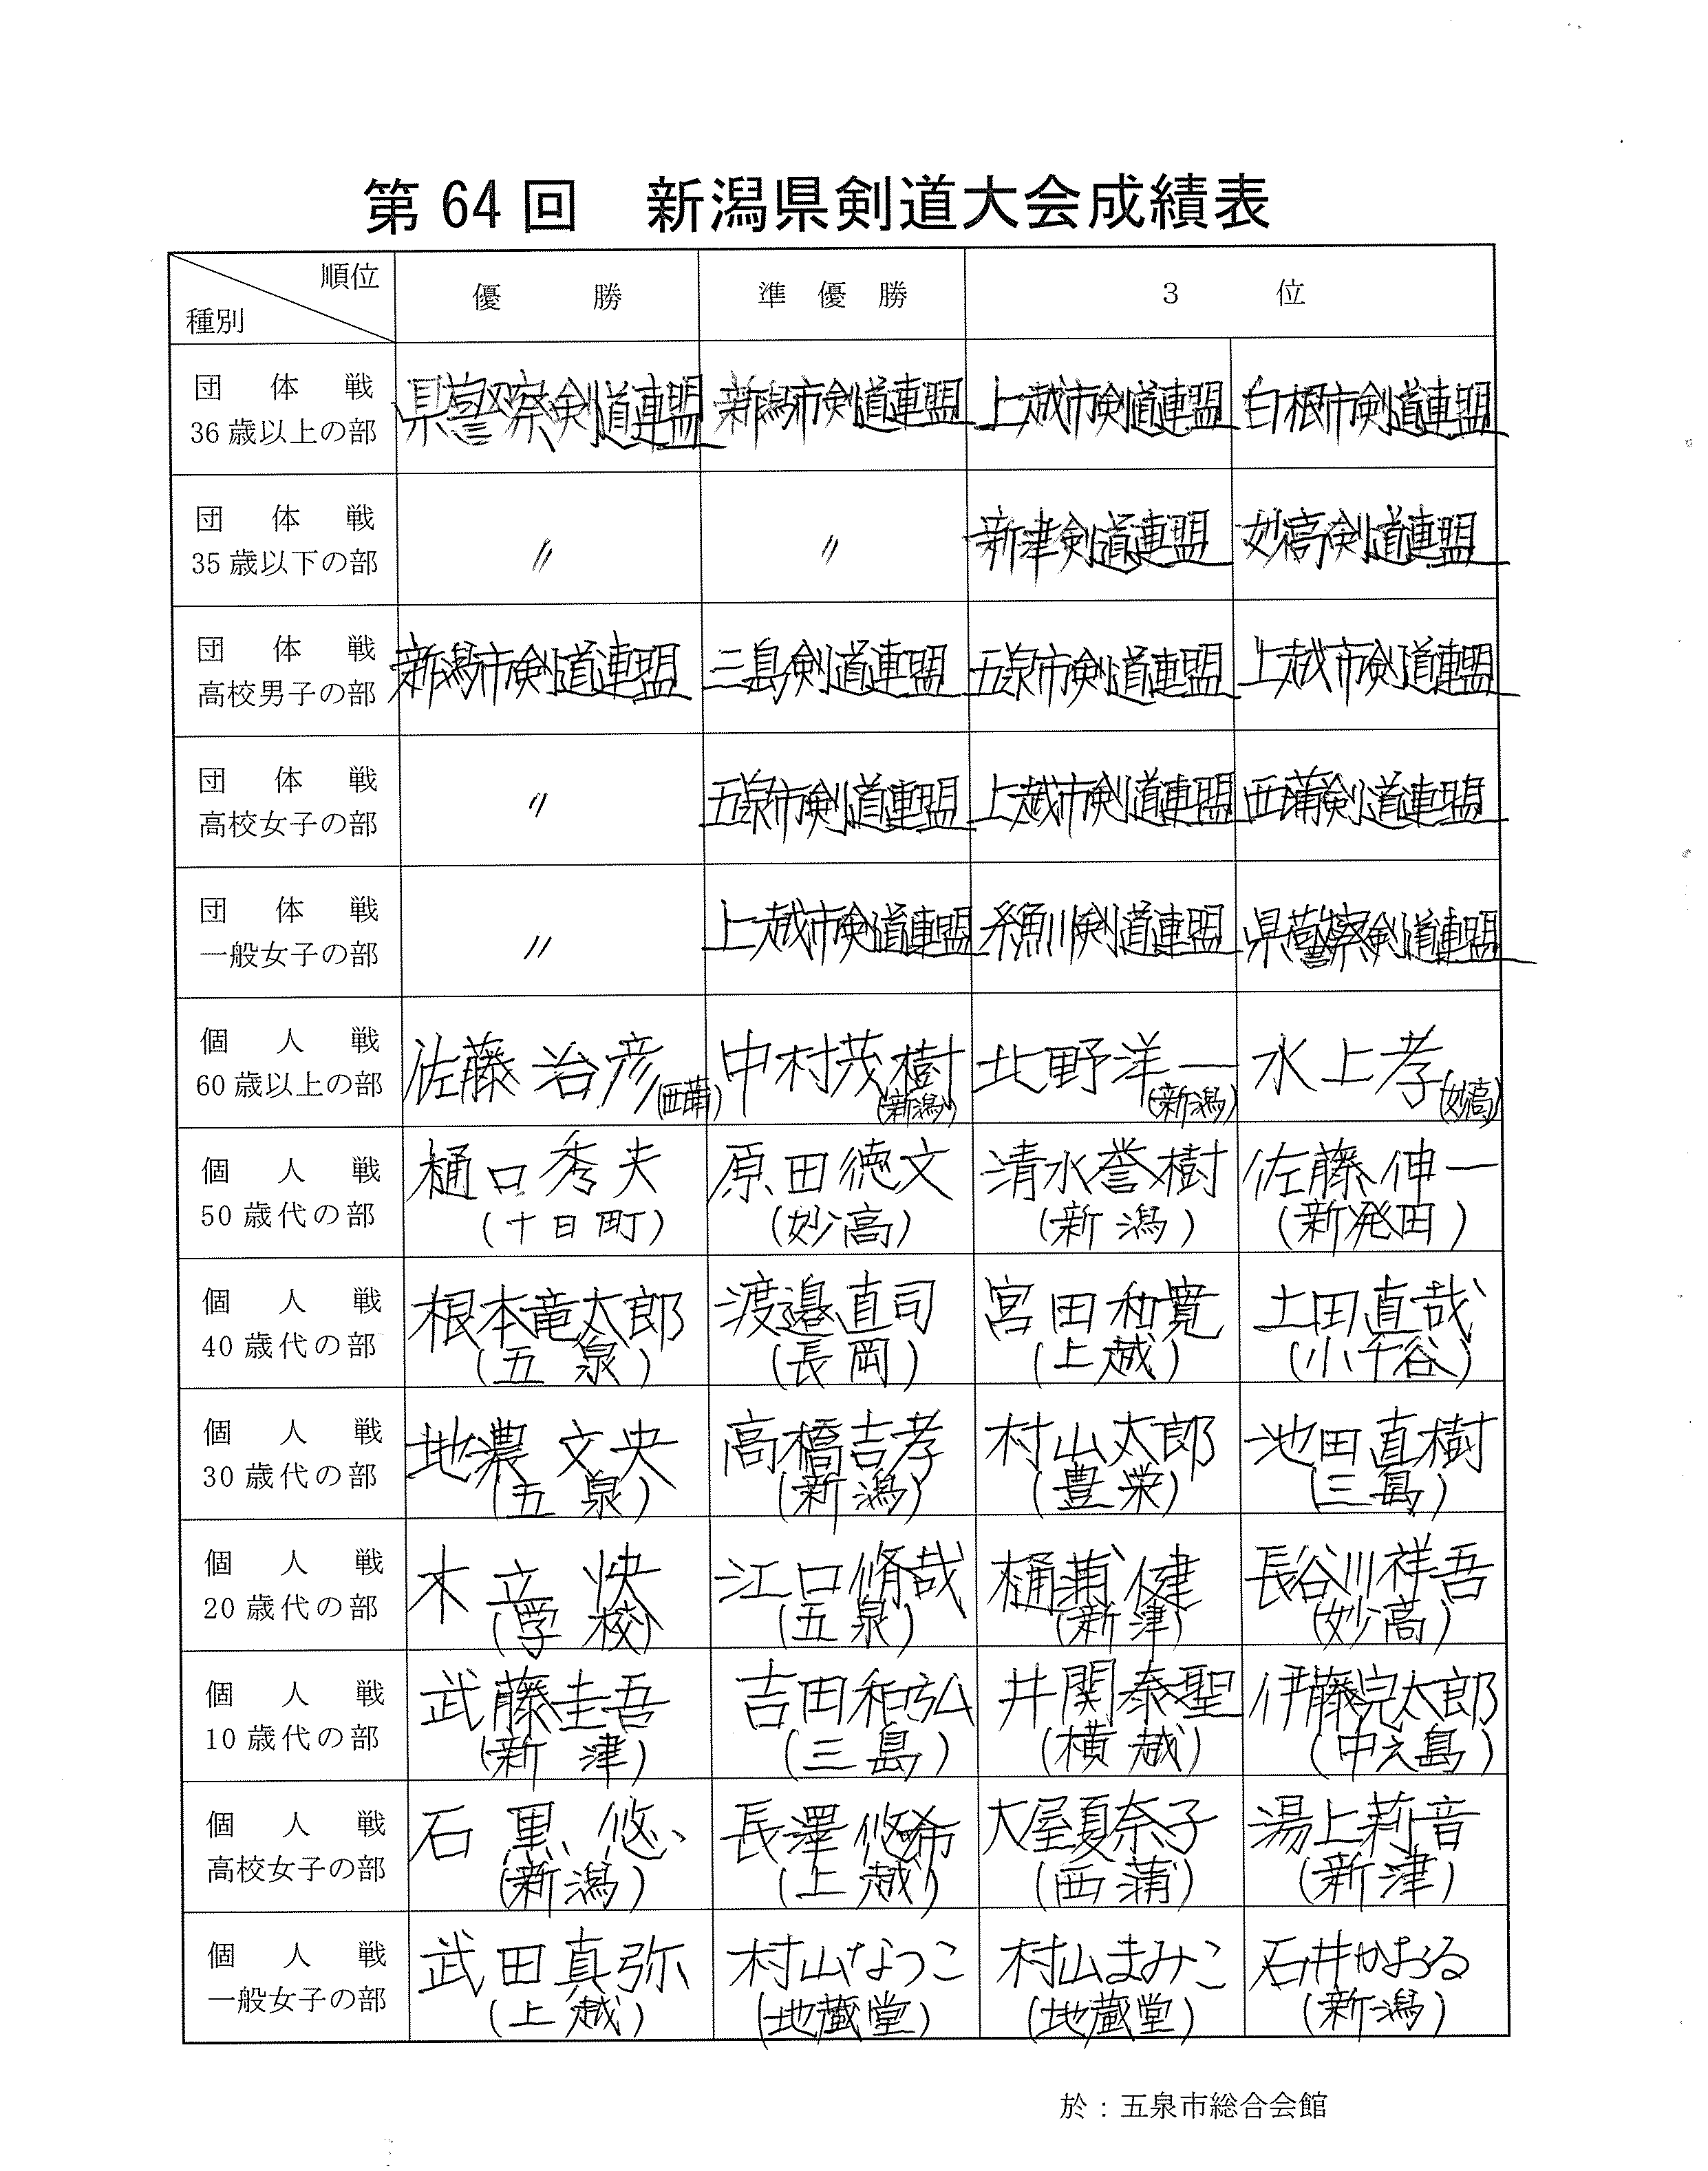 第64回 新潟県剣道大会成績表
順位
種別
優勝 準優勝 3位
団体戦
36歳以上の部
県警察剣道連盟 新潟市剣道連盟 上越市剣道連盟 白根市剣道連盟
団体戦
35歳以下の部
〃 〃 新津剣道連盟 妙高剣道連盟
団体戦
高校男子の部
新潟市剣道連盟 三島剣道連盟 五泉市剣道連盟 上越市剣道連盟
団体戦
高校女子の部
〃 五泉市剣道連盟 上越市剣道連盟 西蒲剣道連盟
団体戦
一般女子の部
〃 上越市剣道連盟 糸魚川剣道連盟 県警察剣道連盟
個人戦
60歳以上の部
佐藤治彦 中村茂樹 北野洋一 水上孝
(西蒲) (新潟) (新潟) (妙高)
個人戦
50歳代の部
樋口秀夫 原田徳文 清水誉樹 佐藤伸一
(十日町) (妙高) (新潟) (新発田)
個人戦
40歳代の部
根本竜太郎 渡邉直司 宮田和寛 土田直哉
(五泉) (長岡) (上越) (小千谷)
個人戦
30歳代の部
地濃文央 高橋吉孝 村山太郎 池田直樹
(五泉) (新潟) (豊栄) (三島)
個人戦
20歳代の部
木立快 江口脩哉 樋浦健 長谷川祥吾
(学校) (五泉) (新津) (妙高)
個人戦
10歳代の部
武藤圭吾 吉田和弘 井関泰聖 伊藤完太郎
(新津) (三島) (横越) (中之島)
個人戦
高校女子の部
石黒悠 長澤悠希 大屋夏奈子 湯上莉音
(新潟) (上越) (西蒲) (新津)
個人戦
一般女子の部
武田真弥 村山なつこ 村山まみこ 石井かおる
(上越) (地蔵堂) (地蔵堂) (新潟)
於：五泉市総合会館